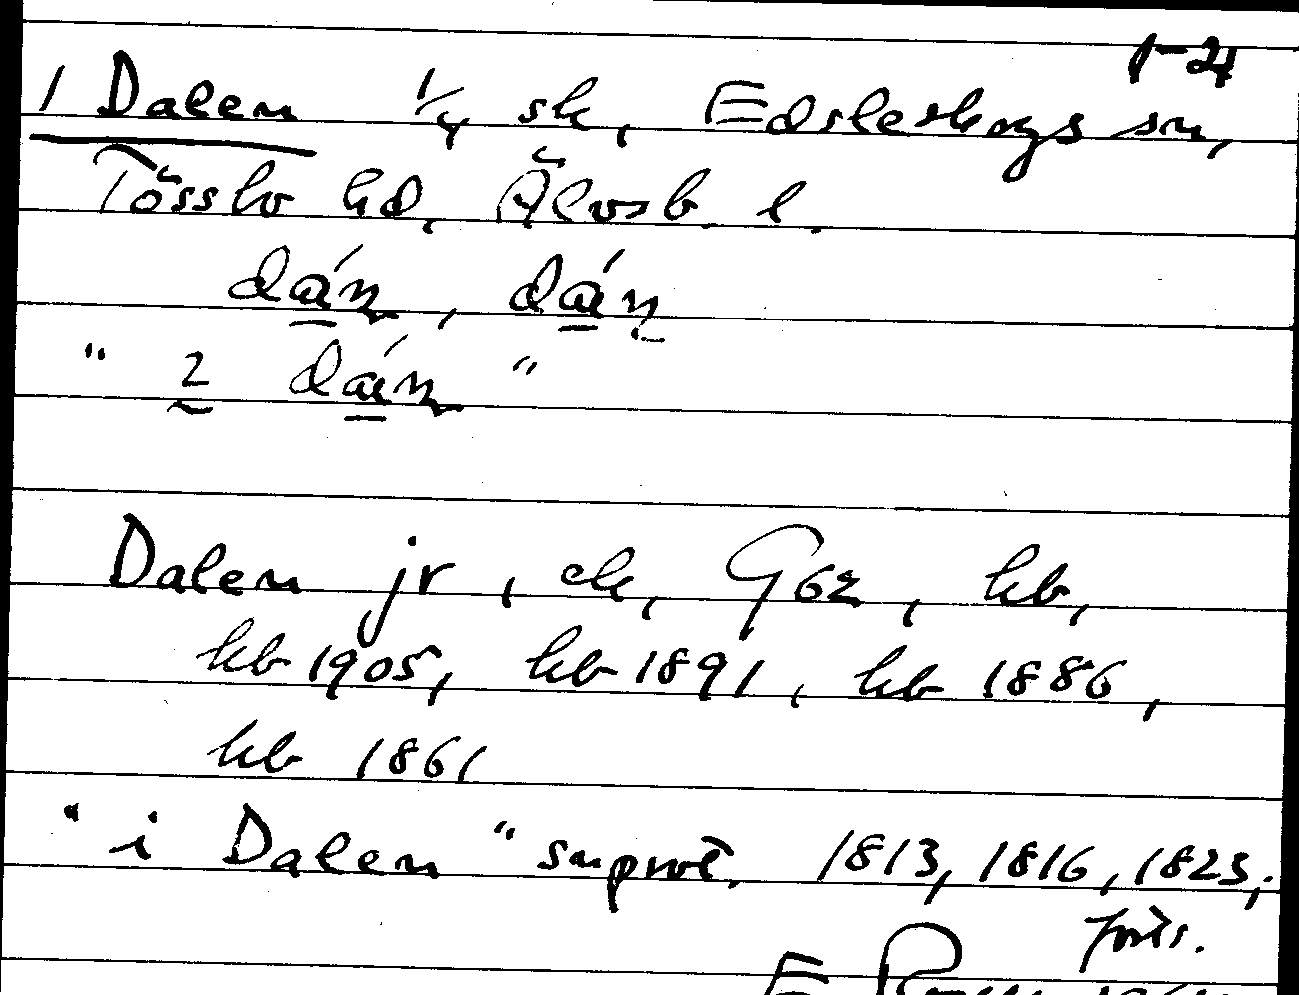 1-4
1 Dalen 1/4 sk, Edsleskogs sn,
Tössbo hd, Älvsb. l.
dán, dán
" i dán "
Dalen jr, ek, G 62, kb,
kb 1905, kb 1891, kb 1886,
kb 1861
" i Dalen " snprot. 1813, 1816, 1823,
forts.